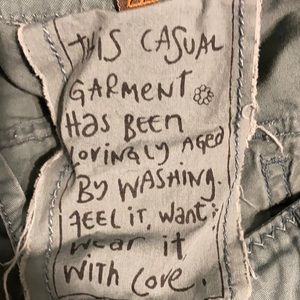 THIS CASUAL
GARMENT
HAS BEEN
lovingly aged
BY WASHING.
FEEL IT, WANT it
wear it
WITH Love.